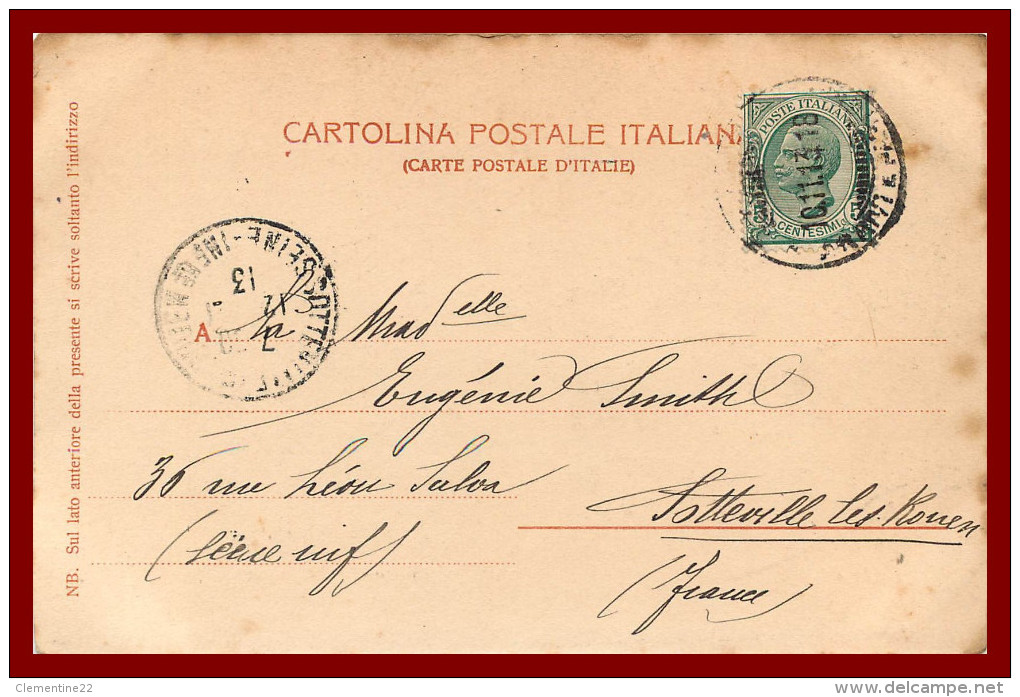 CARTOLINA POSTALE ITALIANA
(CARTE POSTALE D'ITALIE)
POSTE ITALIANE
CENTESIMI
10.11.13-18
SOTTEVILLE
SEINE-INFRE
12
13
A la Madelle
Eugénie Smith
36 rue Léon Salva
Sotteville les Rouen
(Seine inf)
(France)
NB. Sul lato anteriore della presente si scrive soltanto l'indirizzo
Clementine22
delcampe.net